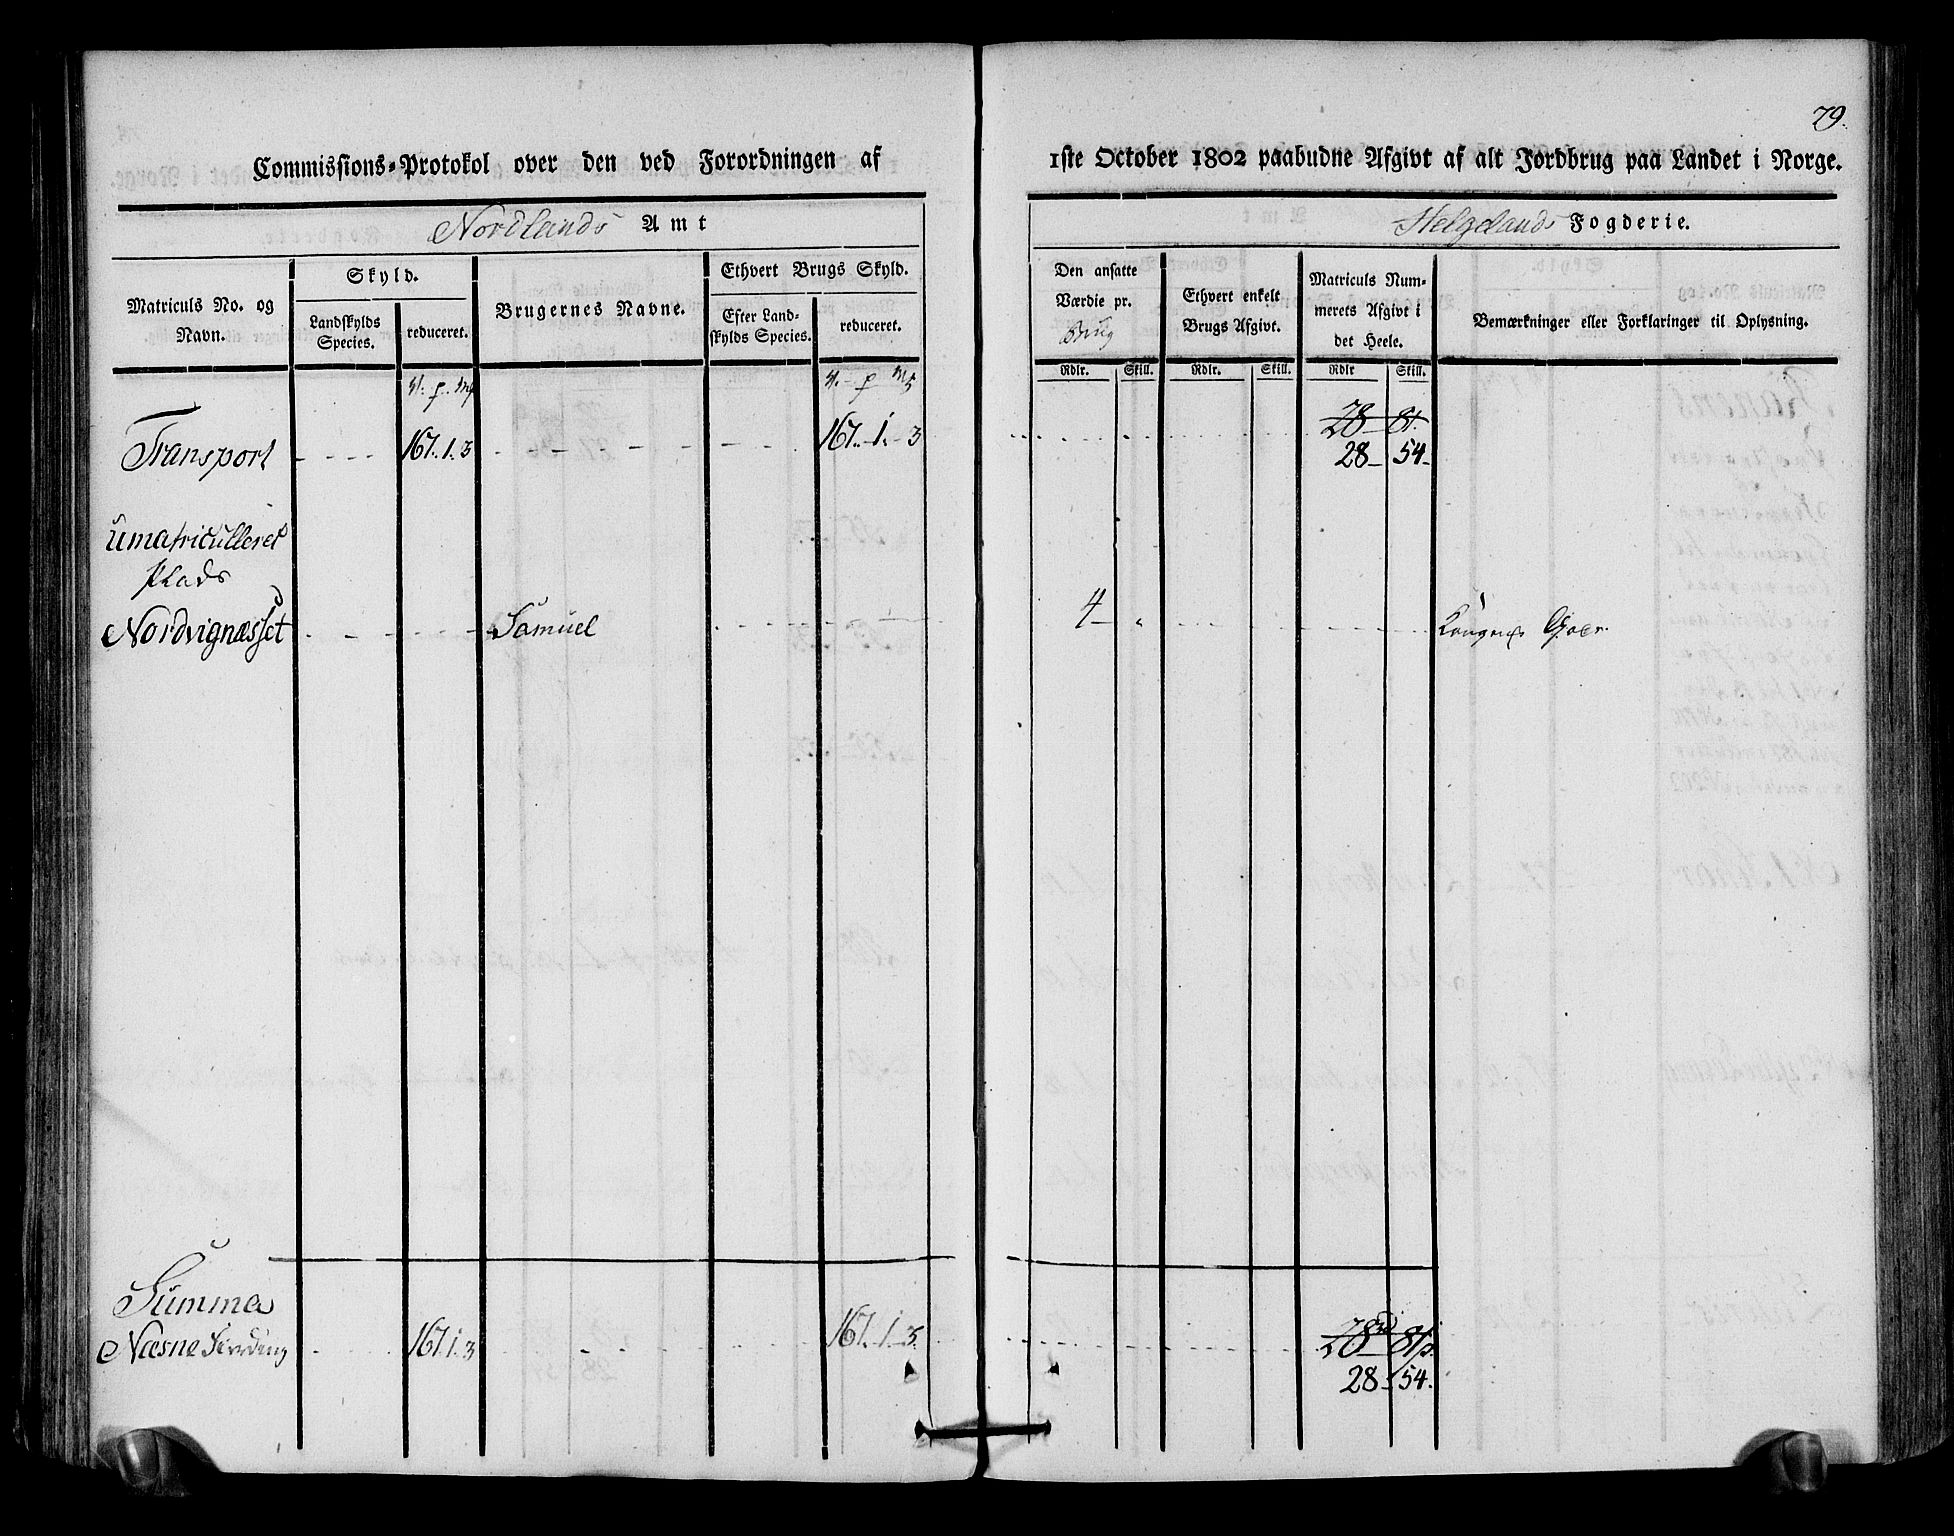 79.
Commissions-Protokol over den ved Forordningen af 1ste October 1802 paabudne Afgivt af alt Jordbrug paa Landet i Norge.
Nordlands Amt
Helgelands Fogderie.
Matriculs No. og Navn.
Skyld.
Landskylds Species.
reduceret.
Brugernes Navne.
Ethvert Brugs Skyld.
Efter Landskylds Species.
reduceret.
Den ansatte Værdie pr. Brug
Ethvert enkelt Brugs Afgivt.
Matriculs Nummerets Afgivt i det Heele.
Bemærkninger eller Forklaringer til Oplysning.
Rdlr. Skill. Rdlr. Skill. Rdlr Skill.
28 81.
Transport 167. 1. 3 167. 1. 3 28 54
Umatriculleret
Plads
Nordvignæsset Samuel 4
Summa
Næsne Fierding 167. 1. 3 167. 1. 3. 28 81
28 54.